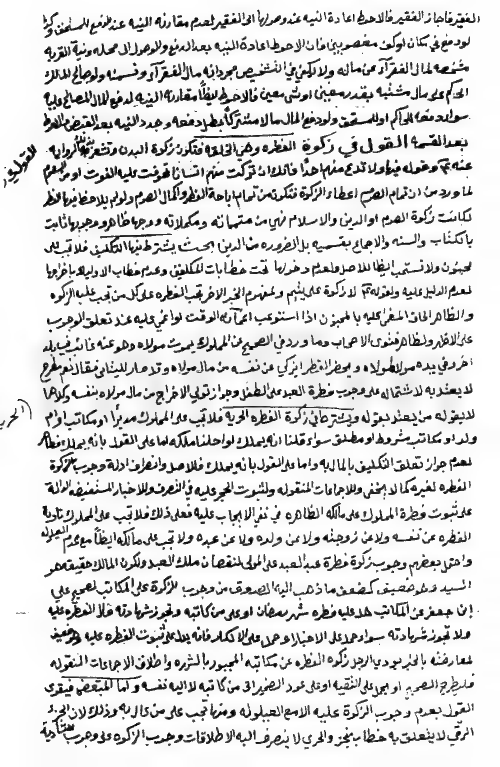 الفقير فاجاز الفقير فالاحوط اعادة النية عند وصولها الى الفقير لعدم مقارنة النية عند الدفع للمستحق وكذا
لو دفع في مكان او كون مغصوبين فان الاحوط اعادة النية بعد الدفع ولوصول الى محله ونية القربة
مشخصة لمال الفقراء عن ماله ولا يكفي في التشخيص مجرد انه مال الفقراء وقسمته ولو صالح المالك
الحاكم على مال مشتبه بقدر معين او شئ معين فالاحوط ايضا مقارنة النية لدفع المال المصالح عليه
سواء دفعه للحاكم او للمستحق ولو دفع المال مالا مشتركا بطل دفعه وجدد النية بعد القبض
بعد القسمة القول في زكوة الفطرة وهي الخلقة فتكون زكوة البدن
عنه وقوله فيها ولا تدع منهم احدا فانك ان تركت منهم انسانا تخوفت عليه الفوت او من
لما ورد من ان تمام الصوم اعطاء الزكوة فتكون من تمام اباحة الفطر واكمال الصوم ولو لم يلاحظ فيها الفطر
لكانت زكوة الصوم او الدين والاسلام فهي من متمماته ومكملاته ووجهها ظاهر ووجوبها ثابت
بالكتاب والسنة والاجماع بقسميه بل الضرورة من الدين بحيث يشترط فيها التكليف فلا تجب على
مجنون ولا تستحب ايضا للاصل ولعدم دخولها تحت خطابات المكلفين وعدم خطاب الاولياء باخراجها
لعدم الدليل عليه ولقوله لا زكوة على يتيم ولمفهوم الخبر الاخر تجب الفطرة على كل من تجب عليه الزكوة
والظاهر الحاق المغمى عليه بالمجنون اذا استوعب اغماؤه الوقت لو اغمي عليه عند تعلق الوجوب
على الاظهر ولظاهر فتوى الاصحاب وما ورد في الصحيح عن المملوك يموت مولاه وهو عنه غائب في بلد
اخر وفي يده مال لمولاه ويحضر الفطر ايزكي عن نفسه من مال مولاه وقد صار لليتامى فقال نعم مطرح
لا يعتد به لاشتماله على وجوب فطرة العبد على الطفل وجواز تولي الاخراج من مال مولاه بنفسه وكلاهما
لا يقوله من يعتد بقوله ويشترط في زكوة الفطرة الحرية فلا تجب على المملوك مدبرا او مكاتب او ام
ولد او مكاتب مشروط او مطلق سواء قلنا انه يملك او احلنا ملكه اما على القول بانه لا يملك
لعدم جواز تعلق التكليف بالمال به واما على القول بانه يملك فللاصل وانصراف ادلة وجوب
الفطرة لغيره كما لا يخفى وللاجماعات المنقولة ولثبوت الحجر عليه في التصرف وللاخبار المستفيضة الدالة
على ثبوت فطرة المملوك على مالكه الظاهرة في نفي الايجاب عليه فعلى ذلك فلا تجب على المملوك تادية
الفطرة عن نفسه ولا عن زوجته ولا عن ولده ولا عن عبده ولا تجب على مالكه ايضا مع عدم
واحتمل بعضهم وجوب زكوة فطرة عبد العبد على المولى لنقصان ملك العبد ولكون المالك حقيقة هو
السيد وهو ضعيف كضعف ما ذهب اليه الصدوق من وجوب الزكوة على المكاتب لصحيح علي
ابن جعفر عن المكاتب هل عليه فطرة شهر رمضان او على من كاتبه وتجوز شهادته قال الفطرة عليه
ولا تجوز شهادته سواء حمل على الاخبار او حمل على الانكار فانه يدل على ثبوت الفطرة عليه وهو ضعيف
لمعارضته بالخبر يؤدي الرجل زكوة الفطرة عن مكاتبه المجبور بالشهرة واطلاق الاجماعات المنقولة
فليطرح الصحيح او يحمل على التقية او على عود الضمير الى من كاتبه لا اليه نفسه واما المبعض فيقوى
القول بعدم وجوب الزكوة عليه الا مع العيلولة ومنها تجب على من عال به وذلك لان الجزء
الرقي لا يتعلق به خطاب بنجز والحري لا ينصرف اليه الاطلاقات وجوب الزكوة وفي وجوب
الحرية